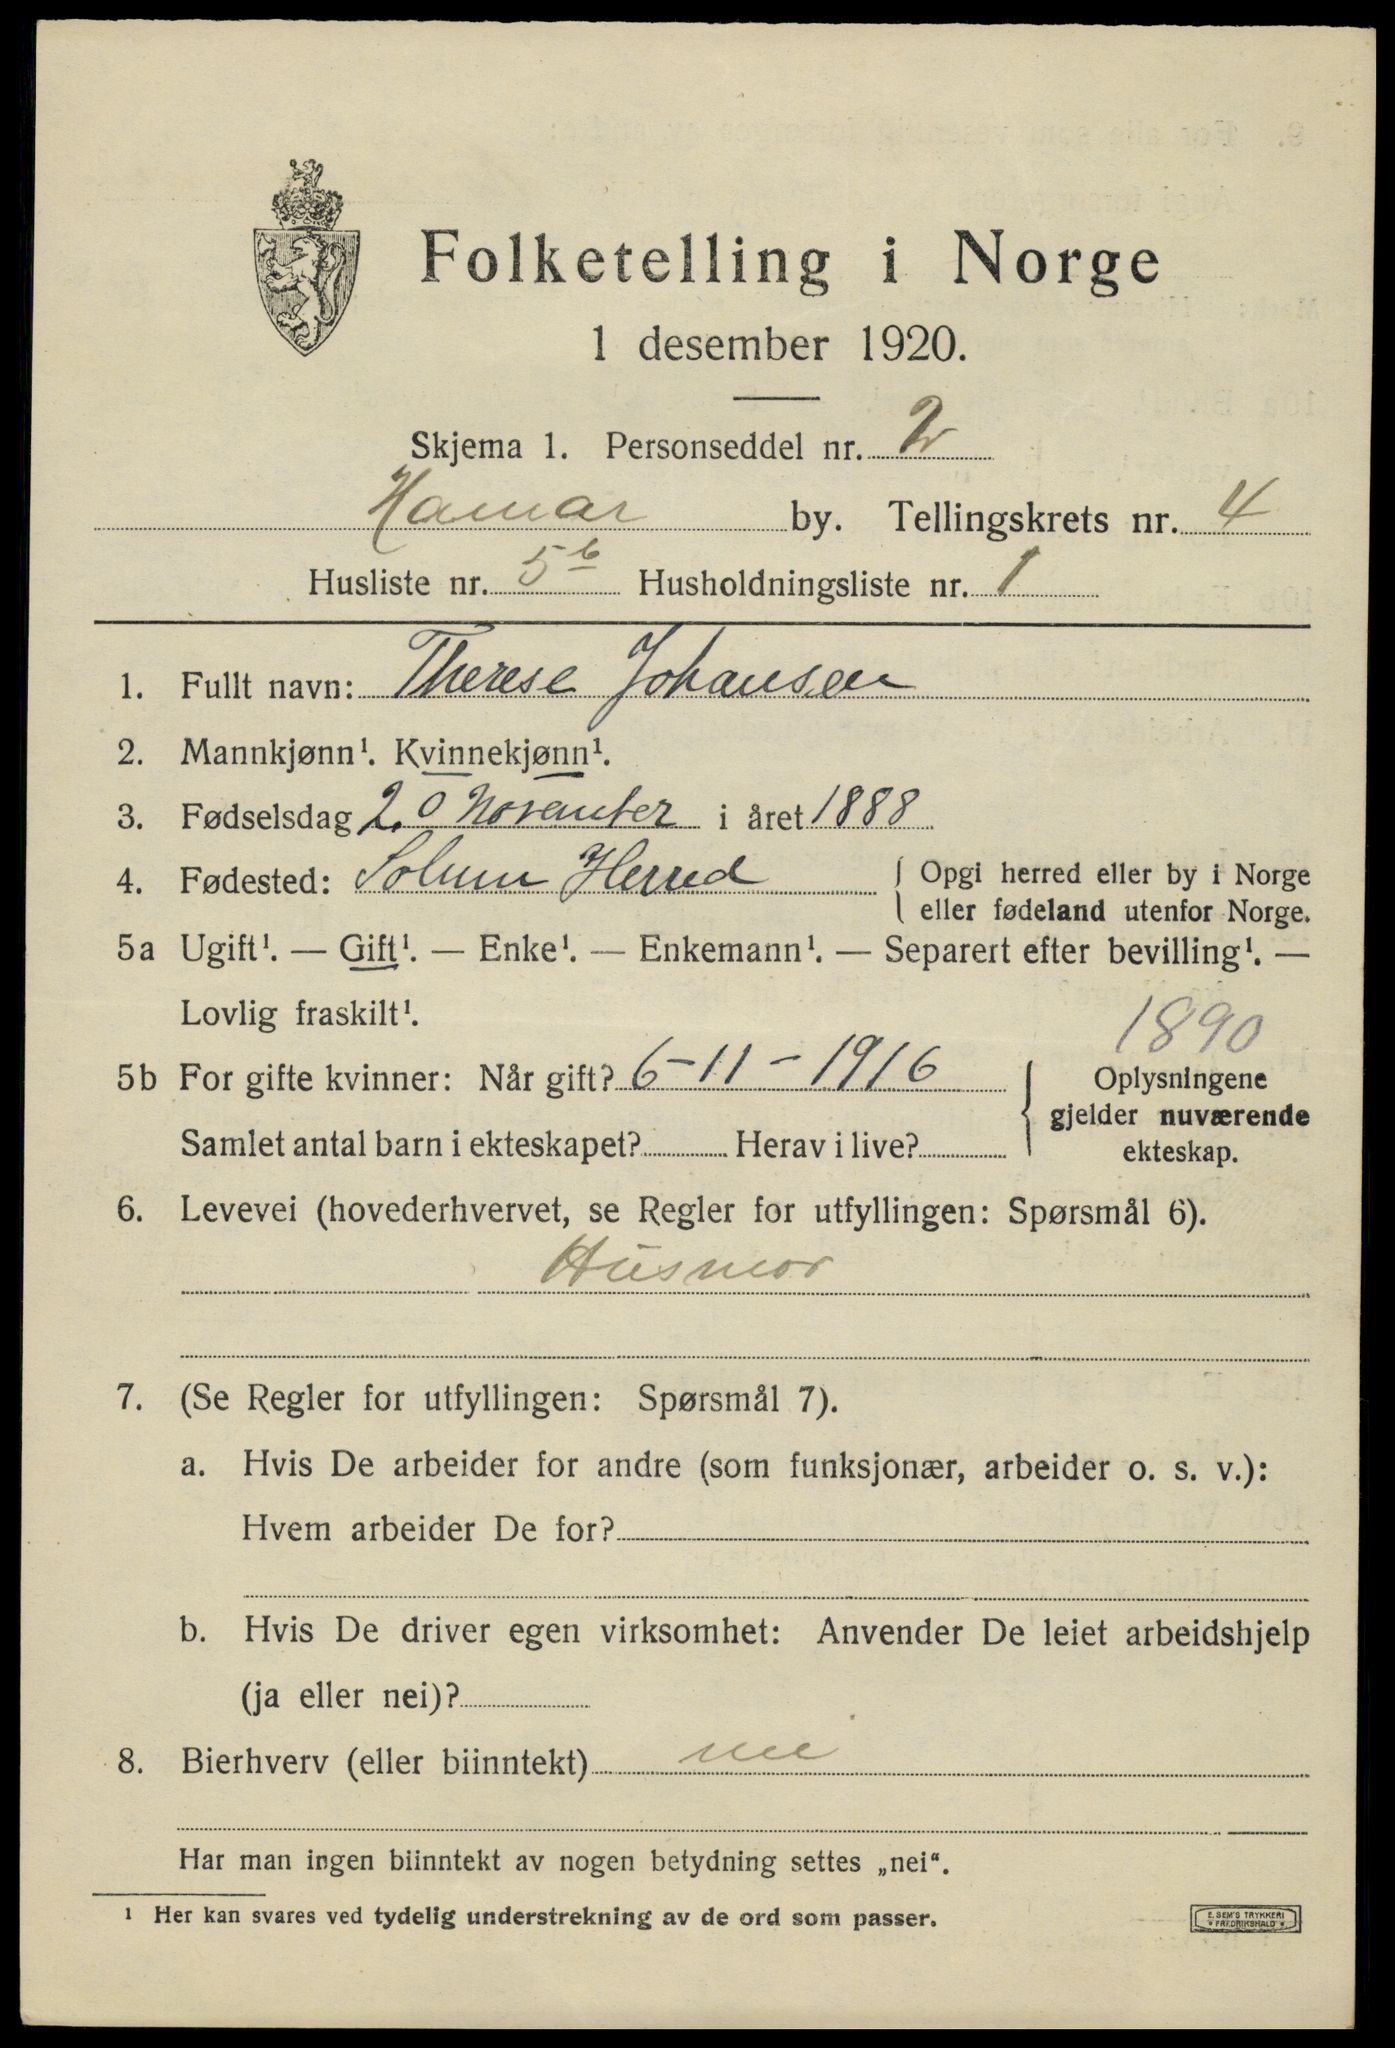 Folketelling i Norge
1 desember 1920.
Skjema 1. Personseddel nr. 2
Hamar by. Tellingskrets nr. 4
Husliste nr. 5b Husholdningsliste nr. 1
1. Fullt navn: Therese Johansen
2. Mannkjønn¹. Kvinnekjønn¹.
3. Fødselsdag 20 November i året 1888
4. Fødested: Solum Herred { Opgi herred eller by i Norge
eller fødeland utenfor Norge.
5a Ugift¹. — Gift¹. — Enke¹. — Enkemann¹. — Separert efter bevilling¹. —
Lovlig fraskilt¹.
1890
5b For gifte kvinner: Når gift? 6-11-1916
Samlet antal barn i ekteskapet? Herav i live?
Oplysningene
gjelder nuværende
ekteskap.
6. Levevei (hovederhvervet, se Regler for utfyllingen: Spørsmål 6).
Husmor
7. (Se Regler for utfyllingen: Spørsmål 7).
a. Hvis De arbeider for andre (som funksjonær, arbeider o. s. v.):
Hvem arbeider De for?
b. Hvis De driver egen virksomhet: Anvender De leiet arbeidshjelp
(ja eller nei)?
8. Bierhverv (eller biinntekt) nei
Har man ingen biinntekt av nogen betydning settes „nei“.
¹ Her kan svares ved tydelig understrekning av de ord som passer.
E. SEM'S TRYKKERI
* FREDRIKSHALD *